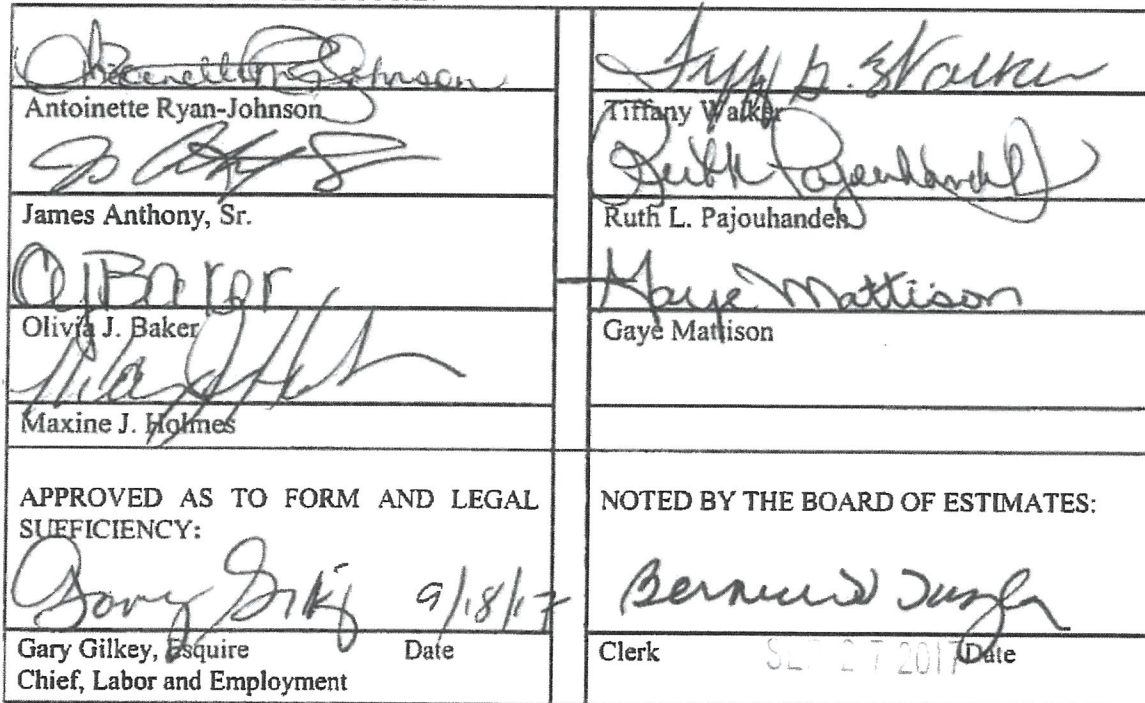 Antoinette Ryan-Johnson
James Anthony, Sr.
OJBaker
Olivia J. Baker
Maxine J. Holmes
APPROVED AS TO FORM AND LEGAL
SUFFICIENCY:
Gary Gilkey 9/18/17
Gary Gilkey, Esquire Date
Chief, Labor and Employment
Walker
Tiffany Walker
Ruth Pajouhandeh
Ruth L. Pajouhandeh
Gaye Mattison
Gaye Mattison
NOTED BY THE BOARD OF ESTIMATES:
Clerk SEP 27 2017 Date